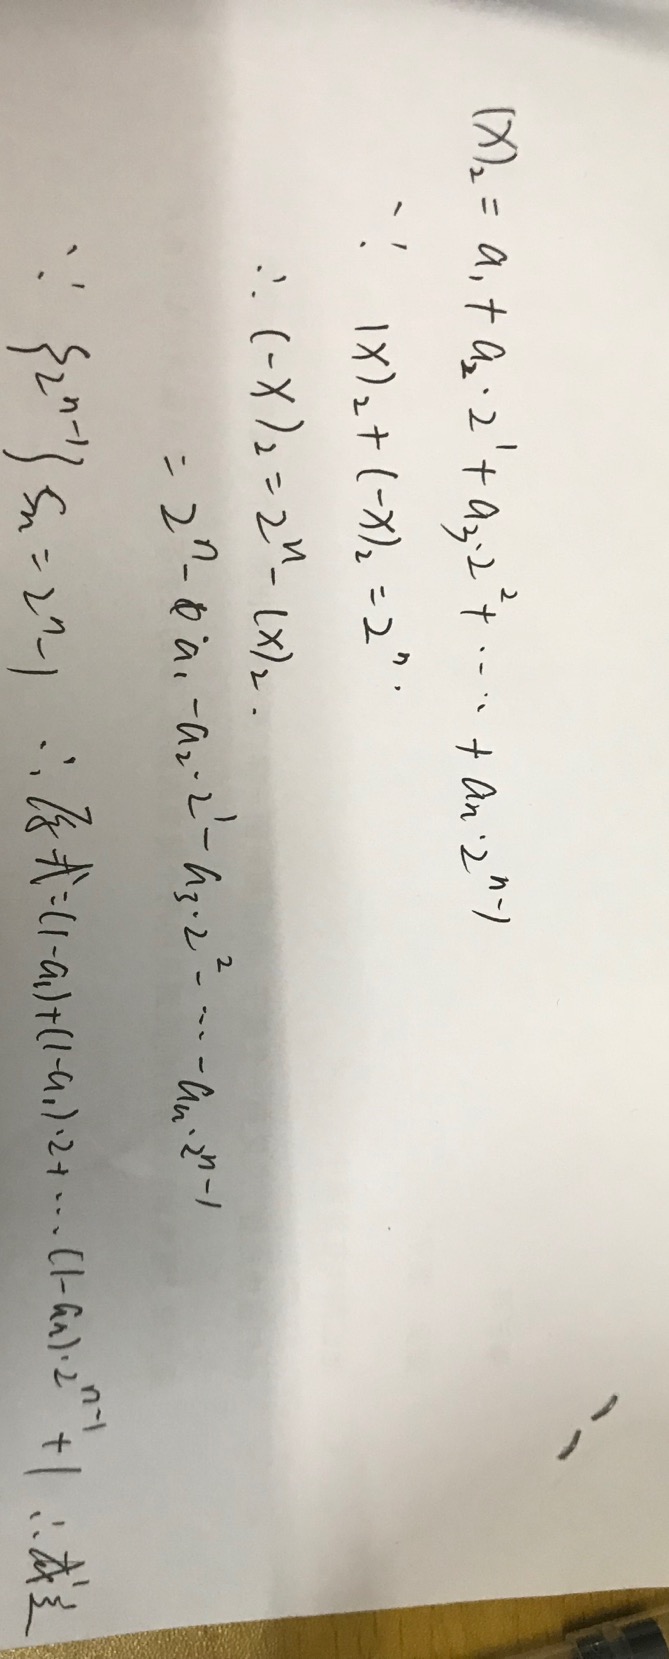 (X)₂ = a₁ + a₂·2¹ + a₃·2² + ····· + aₙ·2ⁿ⁻¹
∵ (X)₂ + (-X)₂ = 2ⁿ.
∴ (-X)₂ = 2ⁿ - (X)₂.
= 2ⁿ - a₁ - a₂·2¹ - a₃·2² - ···· - aₙ·2ⁿ⁻¹
∵ {2ⁿ⁻¹} Sₙ = 2ⁿ-1 ∴ 原式=(1-a₁)+(1-a₁)·2+···(1-aₙ)·2ⁿ⁻¹+1 ∴成立